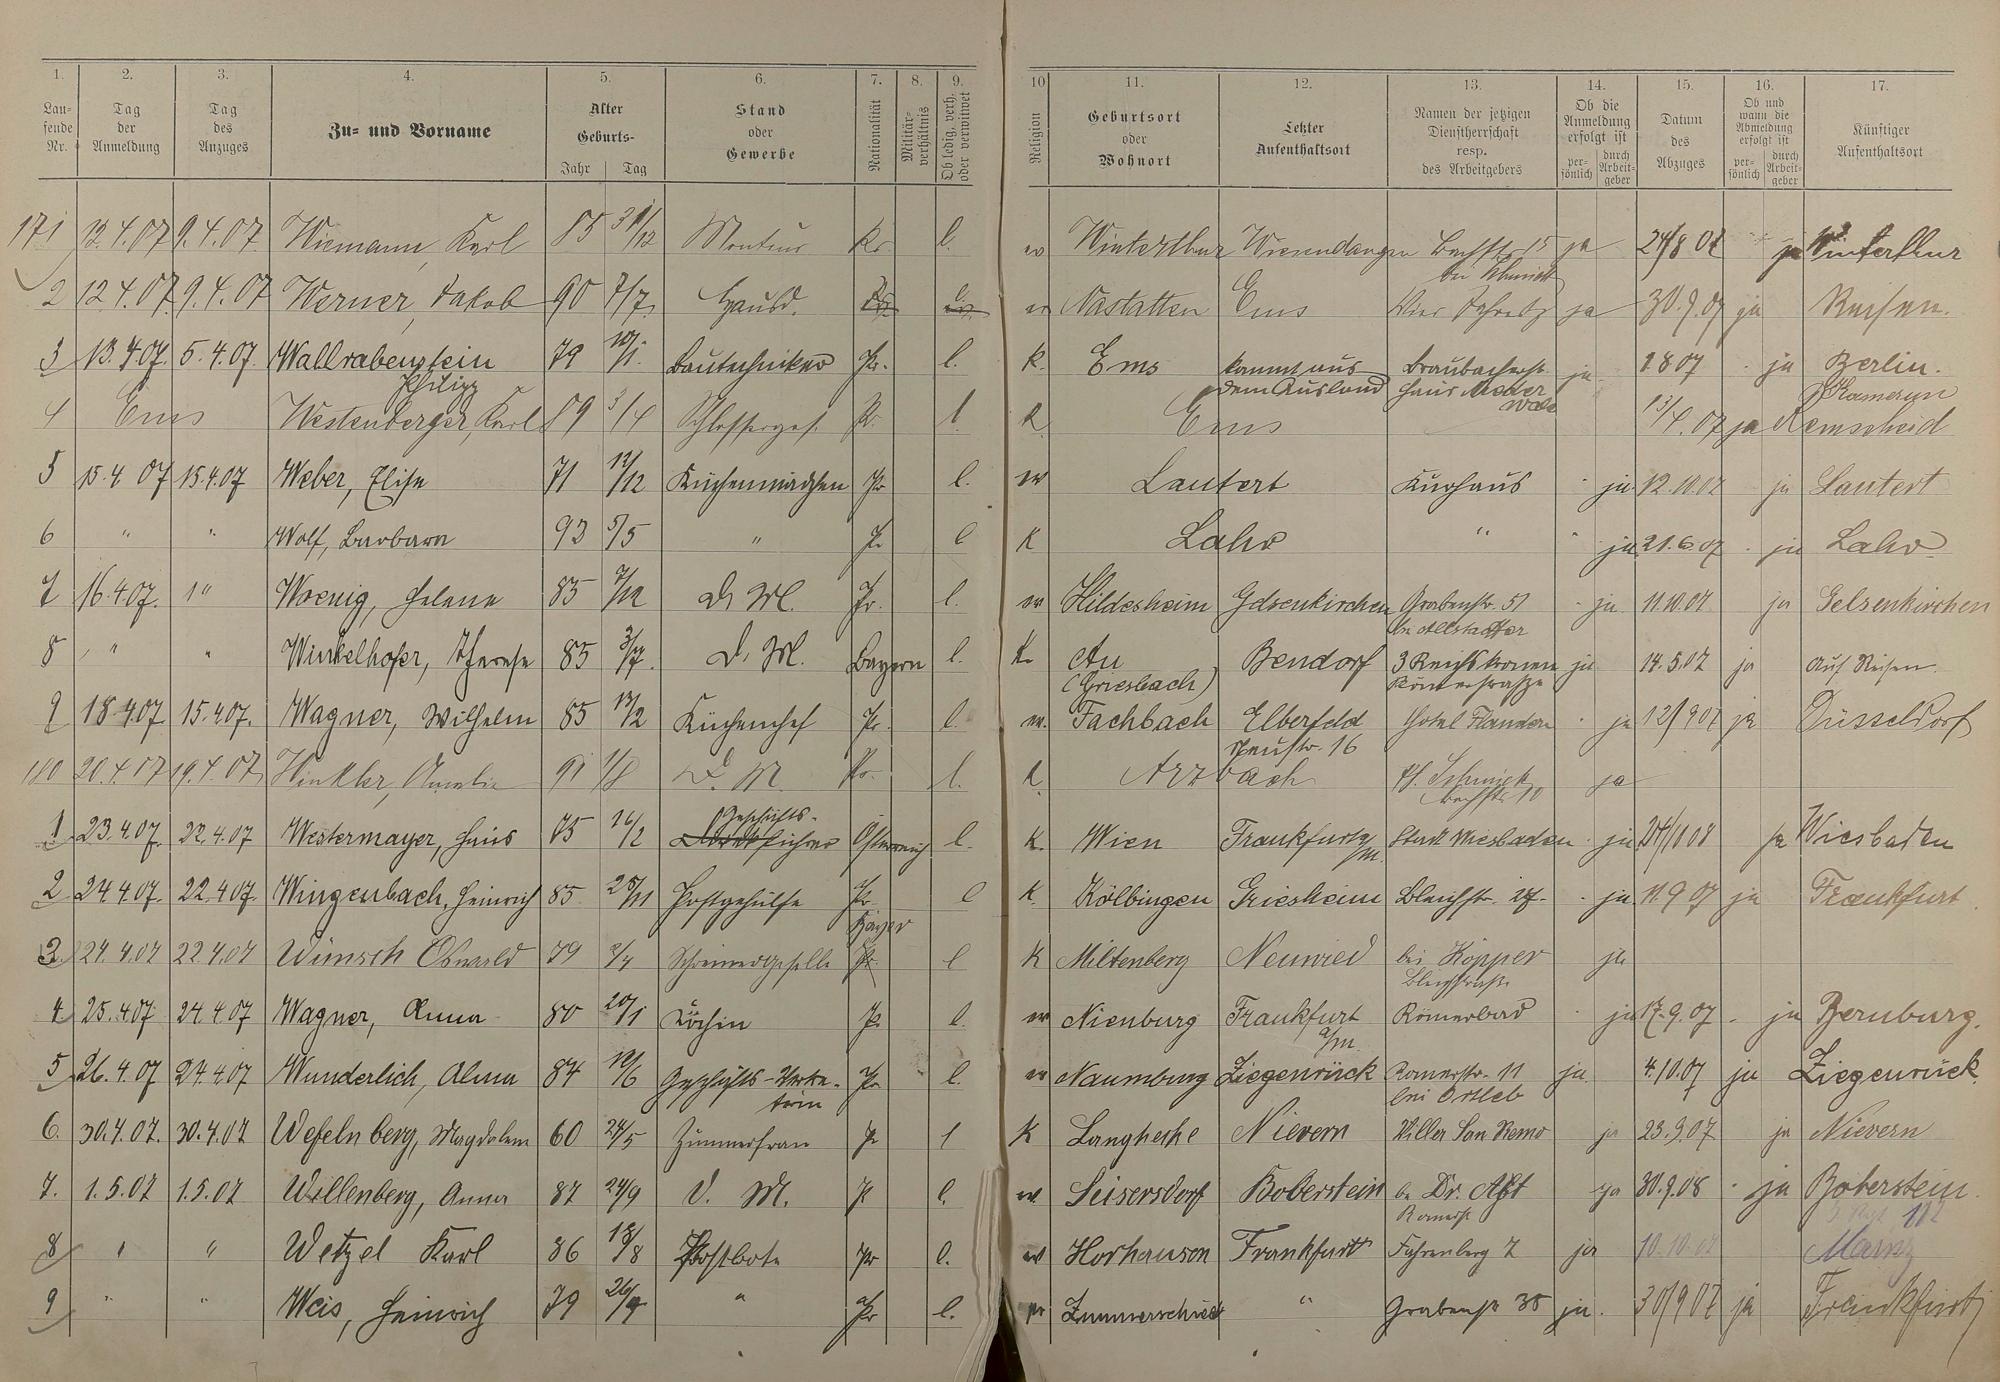 1. 2. 3. 4. 5. 6. 7. 8. 9. 10 11. 12. 13. 14. 15. 16. 17.
Lau-
fende
Nr.
Tag
der
Anmeldung
Tag
des
Anzuges
Zu- und Vorname
Alter
Geburts-
Jahr Tag
Stand
oder
Gewerbe
Nationalität
Militär-
verhältnis
Ob ledig, verh.
oder verwitwet
Religion
Geburtsort
oder
Wohnort
Letzter
Aufenthaltsort
Namen der jetzigen
Dienstherrschaft
resp.
des Arbeitgebers
Ob die
Anmeldung
erfolgt ist
per-
sönlich
durch
Arbeit-
geber
Datum
des
Abzuges
Ob und
wann die
Abmeldung
erfolgt ist
per-
sönlich
durch
Arbeit-
geber
Künftiger
Aufenthaltsort
171 12.4.07 9.4.07. Wiemann, Karl 85 31/12 Monteur Pr. l. ev Winterthur Wiesendangen Bachstr. 15 ja 24/8 07 ja Winterthur
bei Schmidt
2 12.4.07. 9.4.07 Werner, Jakob 90 7/7. Hausb. ev Nastätten Ems Vier Jahresz ja 30.9.07 ja Reisen.
3 13.4.07. 5.4.07. Wallrabenstein 79 10/1. Bautechniker Pr. l. K. Ems kommt aus Braubacherstr. ja 1.8.07 ja Berlin.
Philipp dem Ausland Haus Kamerun
4 Ems Westenberger, Karl 89 3/4 Schlosserges. Pr. l. K Ems 13/4. 07 ja Remscheid
5 15.4.07 15.4.07 Weber, Elise 71 12/12 Küchenmädchen Pr l. ev Lautert Kurhaus ja. 12.10.07 ja Lautert
6 " " Wolf, Barbara 93 5/5 " Pr l K Lahr " ja 21.6.07 ja Lahr
7 16.4.07. " Woenig, Helene 85 7/12 D. M. Pr. l. ev Hildesheim Gelsenkirchen Grabenstr. 51 ja 11.10.07 ja Gelsenkirchen
8 " " Winkelhofer, Therese 85 3/7. D. M. Bayern l. K. Au Bendorf 3 Reichskronen ja 14.5.07 ja Auf Reisen
(Griesbach) Römerstraße
9 18.4.07 15.4.07. Wagner, Wilhelm 85 13/2 Küchenchef Pr. l. ev. Fachbach Elberfeld Hotel Flandern ja 12/9 07 ja Düsseldorf
Neustr. 16
180 20.4.07 19.4.07 Winkler, Amalie 91 1/8 D. M. Pr. l. K. Arzbach ja
Bachstr. 10
1 23.4.07. 22.4.07 Westermayer, Hans 75 16/2 Geschäfts-
führer Österreich l. K. Wien Frankfurt a/M. Stadt Wiesbaden ja 24/11 08 ja Wiesbaden
2 24.4.07. 22.4.07. Wingenbach, Heinrich 85 25/11 Postgehülfe Pr l K. Kölbingen Griesheim Bleichstr. 27. ja 11.9 07 ja Frankfurt
3. 24.4.07 22.4.07 Wünsch Oswald 79 2/4 Schreinergeselle Bayer l K Miltenberg Neuwied bei Köpper ja
Bleichstraße
4 25.4.07 24.4.07 Wagner, Anna 80 20/1 Köchin Pr l. ev Nienburg Frankfurt a/M. Römerbad ja 17.9.07 ja Bernburg.
5 26.4.07 24.4.07 Wunderlich, Alma 84 12/6 Geschäfts-Vertre- Pr l. ev Naumburg Ziegenrück Römerstr. 11 ja 4.10.07 ja Ziegenrück.
terin bei Ortleb
6. 30.4.07. 30.4.07 Wefelnberg, Magdalena 60 24/5 Zimmerfrau Pr l K Langhecke Nievern Villa San Remo ja 23.9.07 ja Nievern
7. 1.5.07 1.5.07 Willenberg, Anna 87 24/9 D. M. Pr l. ev Seisersdorf Boberstein be Dr. Abt ja 30.9.08 ja Boberstein.
Römerstr
8 " " Wetzel Karl 86 18/8 Postbote Pr l. ev Horhausen Frankfurt Fahrenberg 7 ja 10.10.07 Mainz
9 " " Weis, Heinrich 79 26/9 " Pr l. ev Zimmerschied " Grabenstr 35 ja. 30/9 07 ja Frankfurt